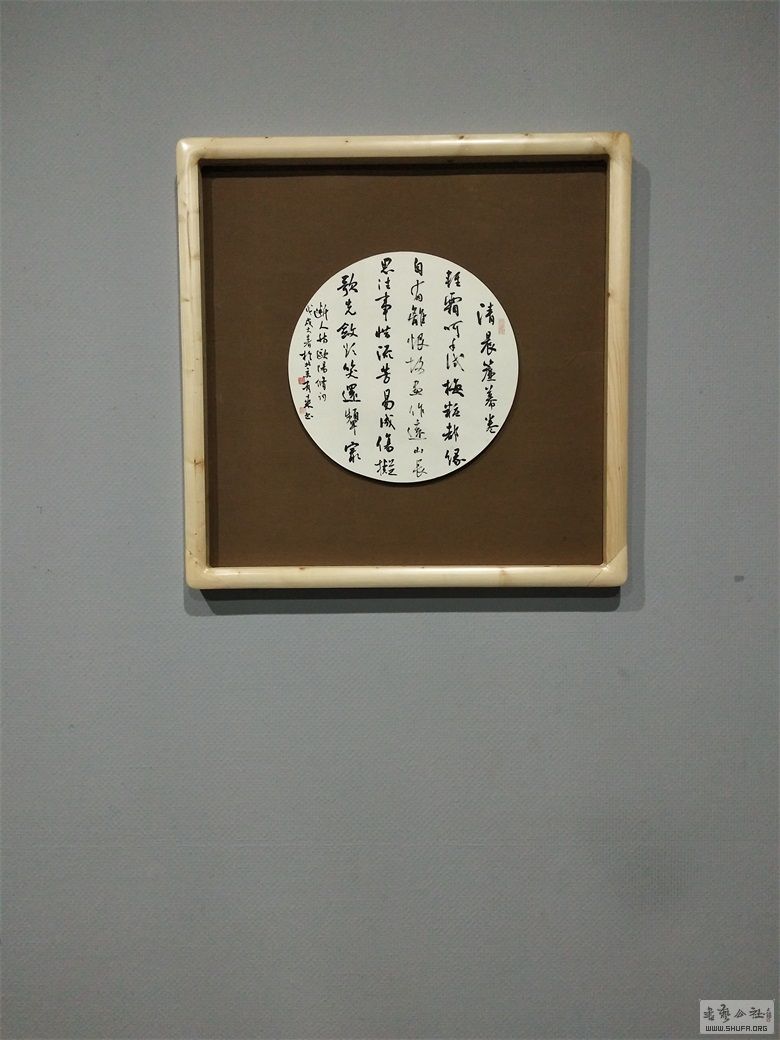 清晨簾幕卷
輕霜呵手試梅粧都緣
自有離恨故畫作遠山長
思往事惜流芳易成傷擬
歌先斂欲笑還顰最
斷人腸歐陽脩詞
戊戌春於北京書
書藝公社
WWW.SHUFA.ORG